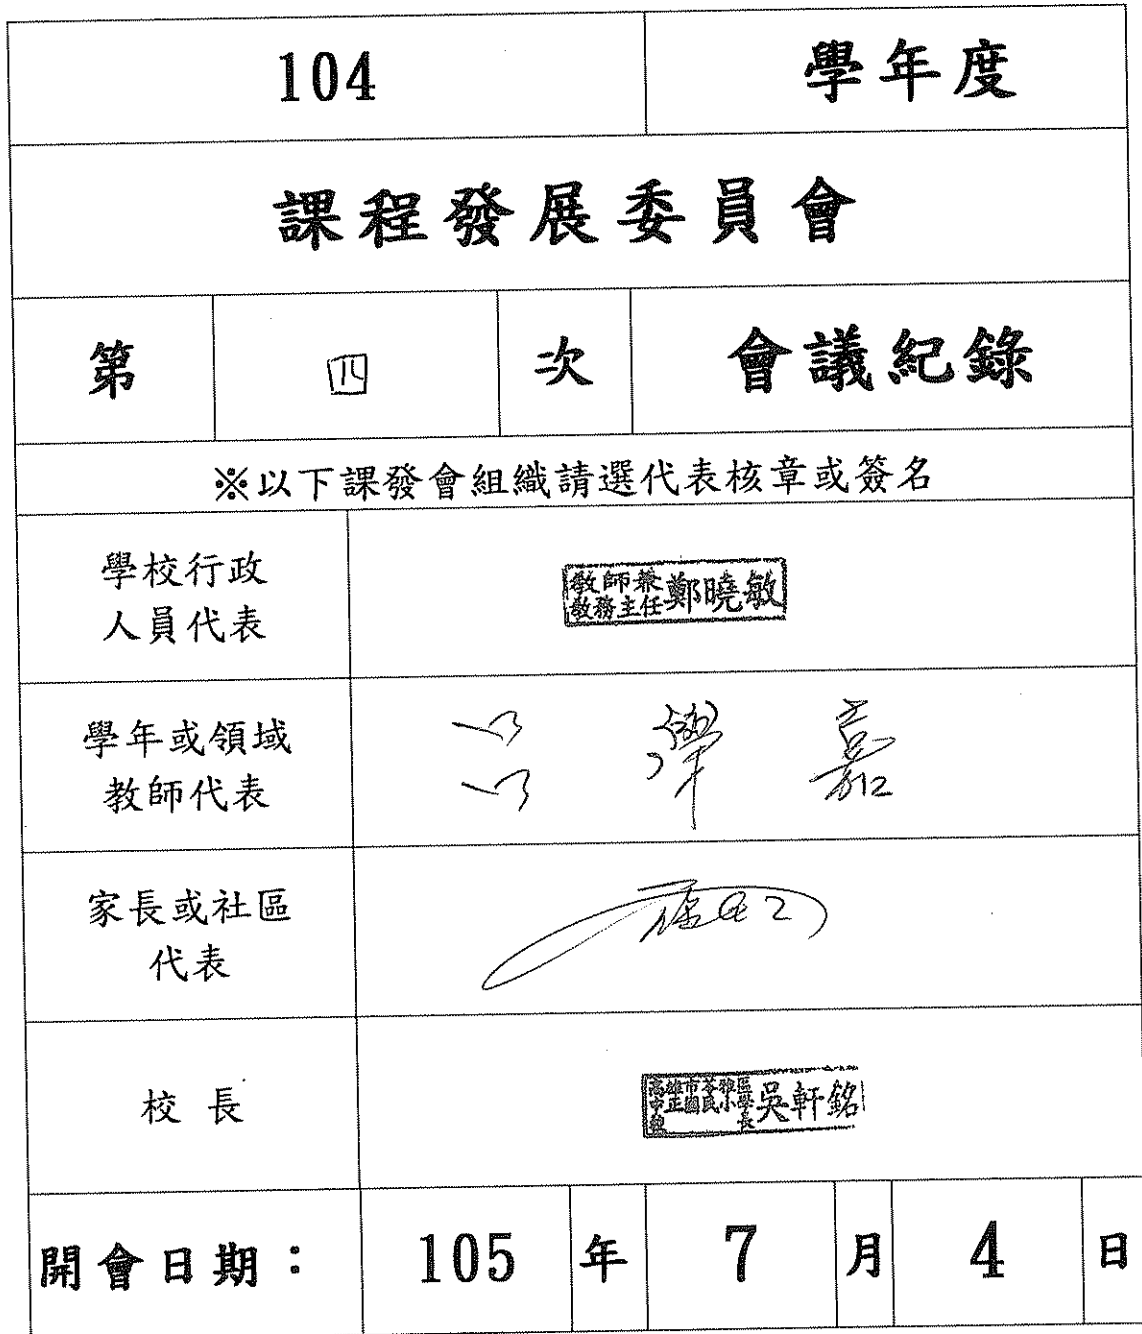 104 學年度
課程發展委員會
第 四 次 會議紀錄
※以下課發會組織請選代表核章或簽名
學校行政
人員代表
教師兼
教務主任 鄭曉敏
學年或領域
教師代表
嘉
家長或社區
代表
校長
高雄市苓雅區
中正國民小學
校長 吳軒銘
開會日期： 105 年 7 月 4 日